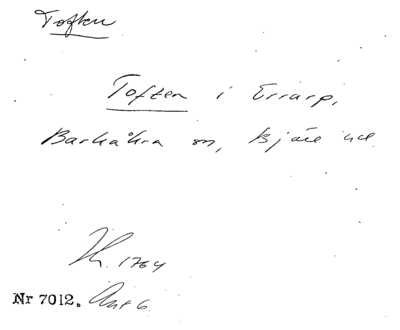 Toften
Toften i Errarp,
Barkåkra sn, Bjäre hd
1764
Nr 7012.